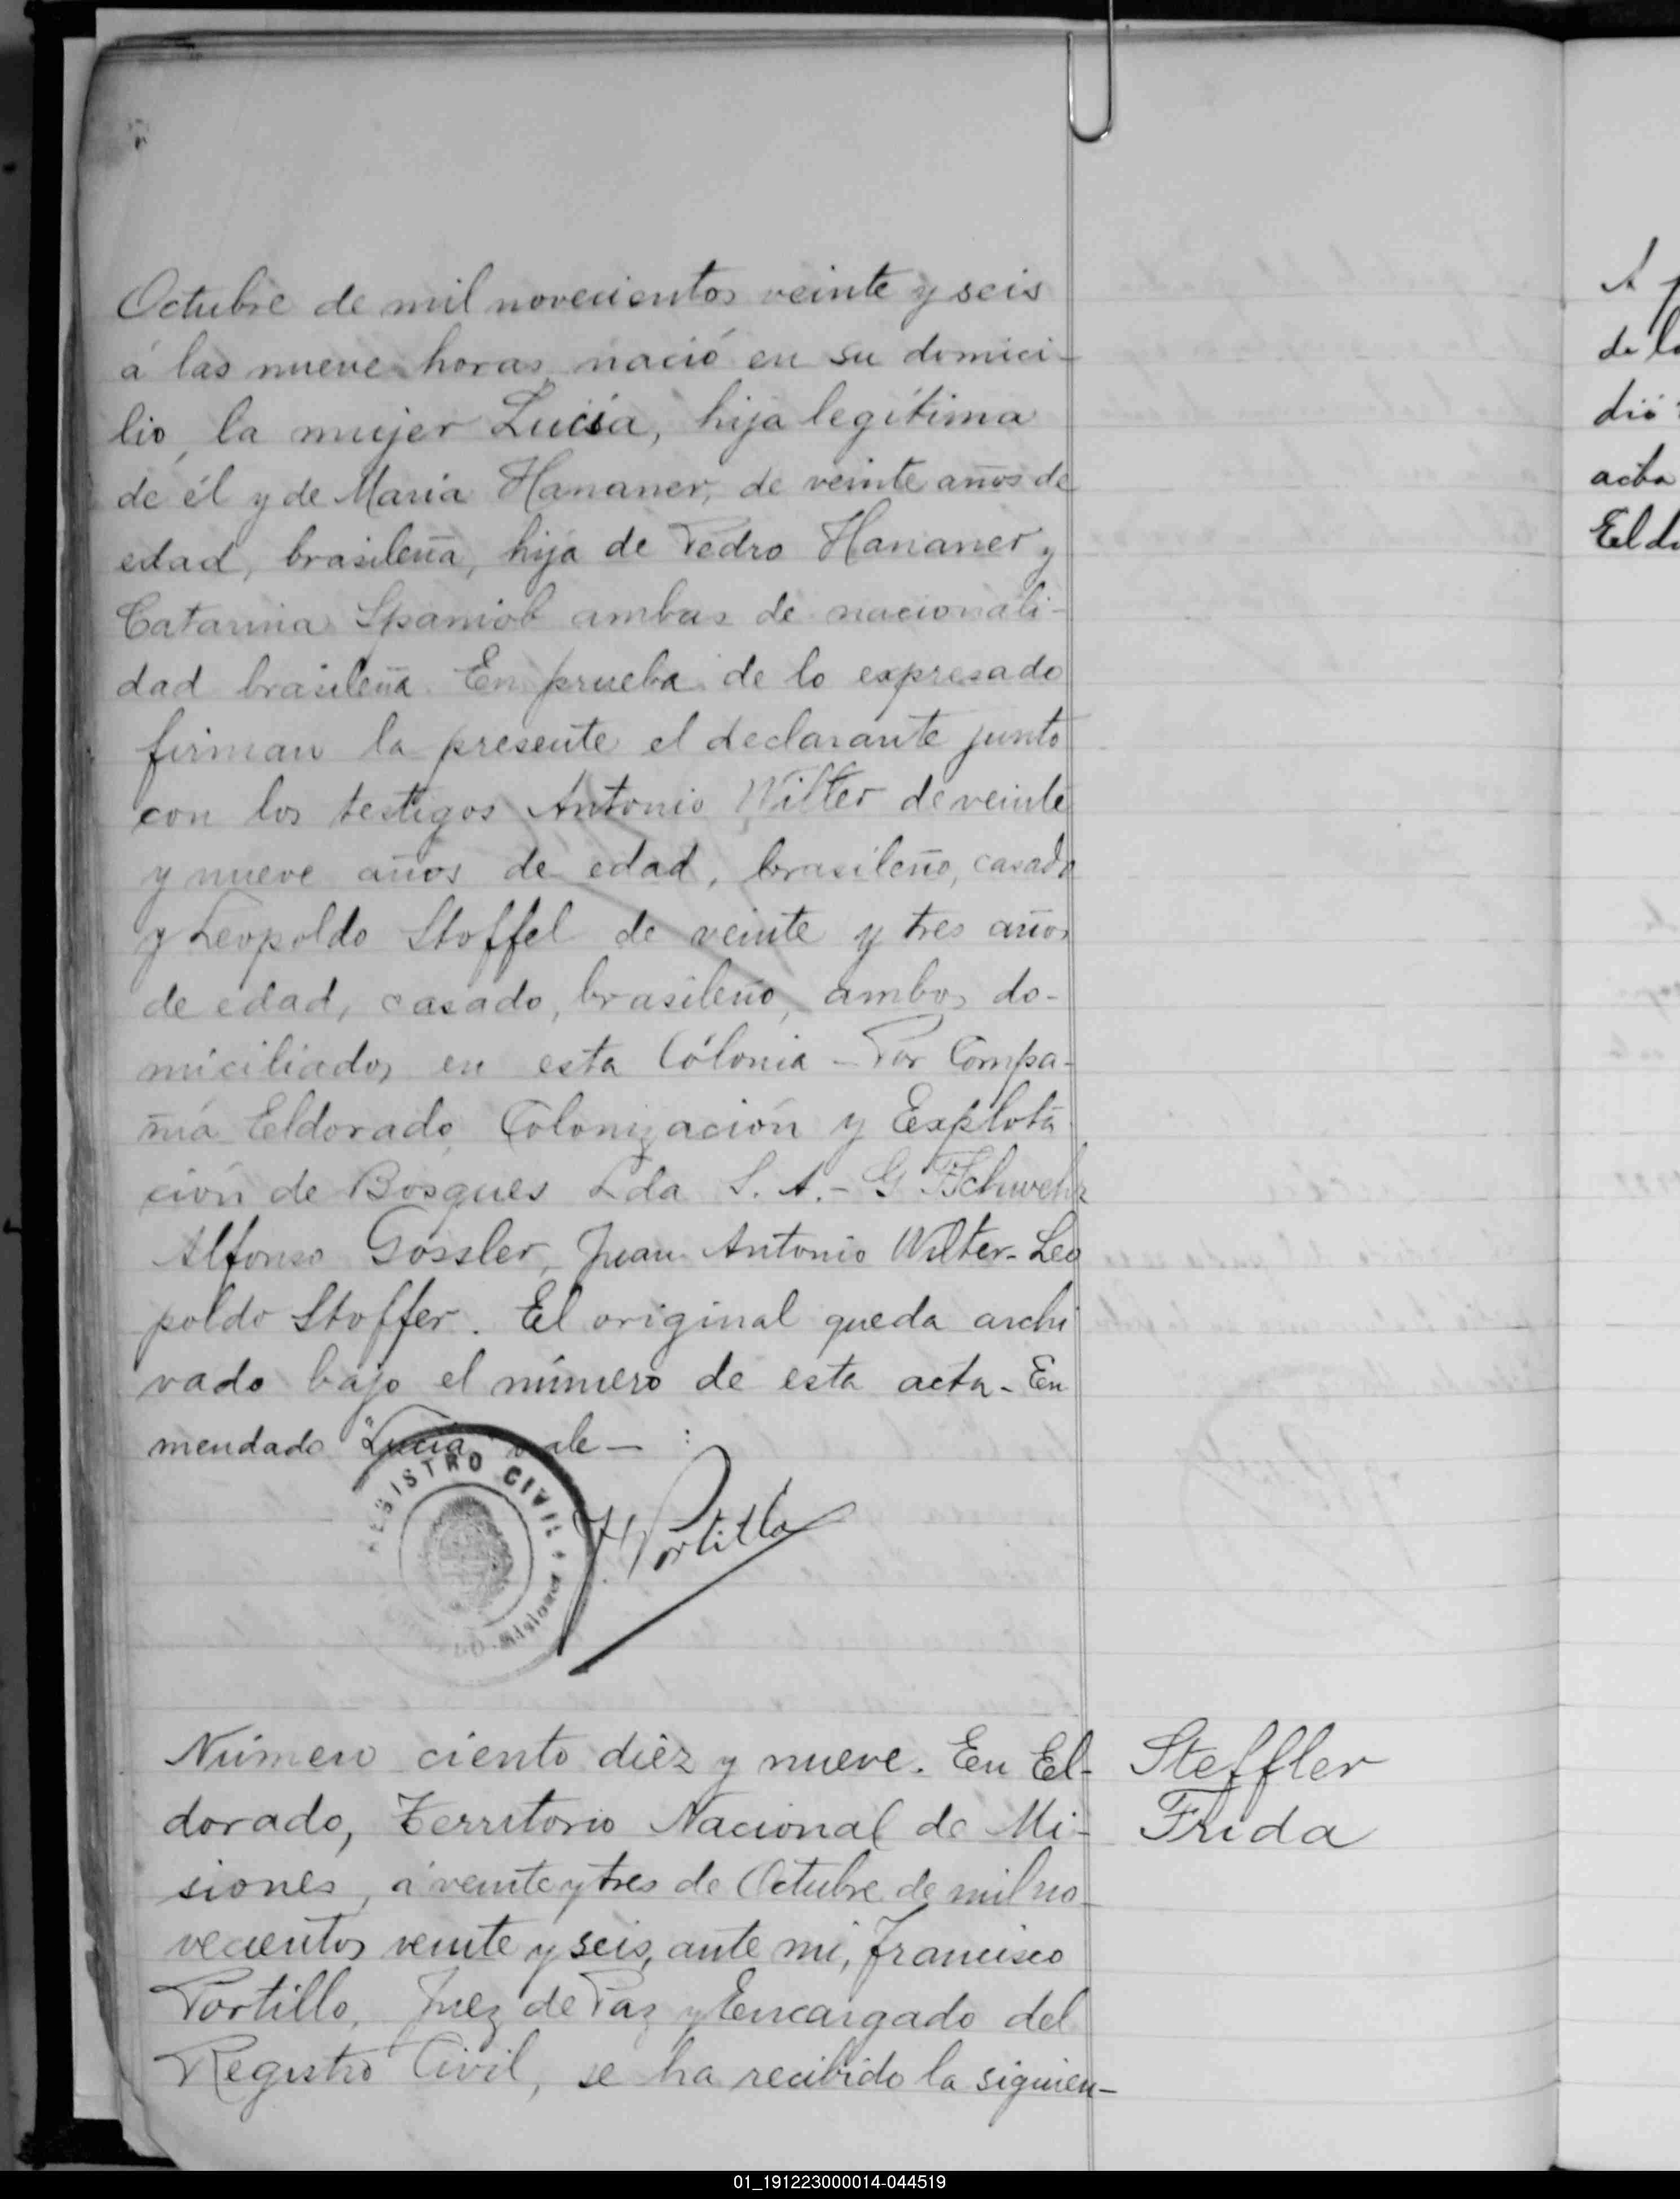 Octubre de mil novecientos veinte y seis
á las nueve horas, nació en su domici-
lio, la mujer Lucía, hija legítima
de él y de María Hananer, de veinte años de
edad, brasileña, hija de Pedro Hananer y
Catarina Spaniol ambas de nacionali-
dad brasileña. En prueba de lo expresado
firman la presente el declarante junto
con los testigos Antonio Wilter de veinte
y nueve años de edad, brasileño, casado
y Leopoldo Stoffel de veinte y tres años
de edad, casado, brasileño, ambos do-
miciliados en esta Cólonia - Por Compa-
ñia Eldorado, Colonización y Explota
ción de Bosques Lda S. A. - G
Alfonso Gossler, Juan Antonio Wilter - Leo
poldo Stoffer. El original queda archi
vado bajo el número de esta acta - En
mendado "Lucía" vale -
REGISTRO CIVIL
Misiones
F Portillo
Número ciento diez y nueve. En El-
dorado, Territorio Nacional de Mi-
siones, á veinte y tres de Octubre de mil no-
vecientos veinte y seis, ante mi, Francisco
Portillo, Juez de Paz y Encargado del
Registro Civil, se ha recibido la siguien-
Steffler
Frida
A
de
dió
acta
El
01_191223000014-044519